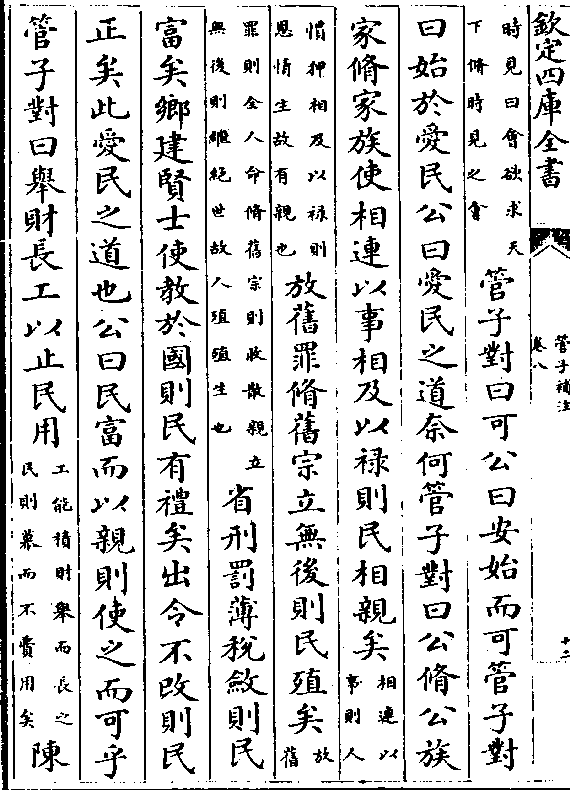 欽定四庫全書
管子補注
卷八
十二
時見曰會欲求天
下脩時見之會
管子對曰可公曰安始而可管子對
曰始於愛民公曰愛民之道奈何管子對曰公脩公族
家脩家族使相連以事相及以禄則民相親矣
相連以
事則人
慣狎相及以禄則
恩情生故有親也
放舊罪脩舊宗立無後則民殖矣
放
舊
罪則全人命脩舊宗則收散親立
無後則繼絶世故人殖殖生也
省刑罰薄税斂則民
富矣鄉建賢士使教於國則民有禮矣出令不改則民
正矣此愛民之道也公曰民富而以親則使之而可乎
管子對曰舉財長工以止民用
工能積財舉而長之
民則慕而不費用矣
陳